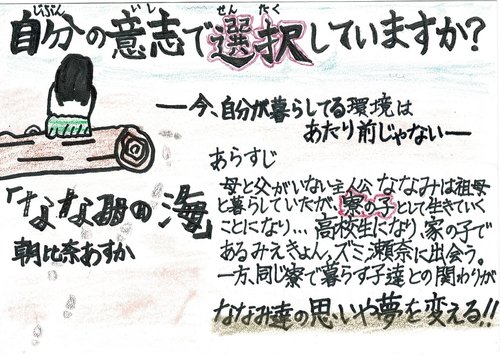 じぶん いし せんたく
自分の意志で選択していますか?
―今、自分が暮らしてる環境は
あたり前じゃない―
あらすじ
母と父がいない主人公 ななみは祖母
と暮らしていたが、寮の子として生きていく
ことになり... 高校生になり、家の子で
あるみえきょん、ズミ、瀬奈に出会う。
一方、同じ寮で暮らす子達との関わりが
ななみ達の思いや夢を変える!!
「ななみの海」
朝比奈あすか